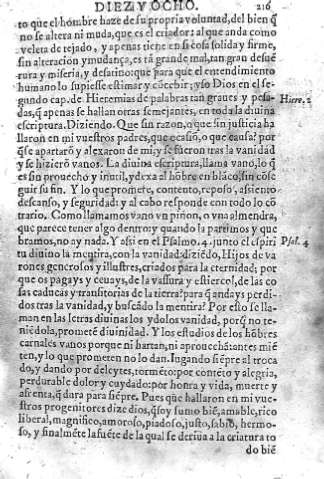 DIEZ Y OCHO. 216
to que el hombre haze de su propria voluntad, del bien q̃
no se altera ni muda, que es el criador: al que anda como
veleta de tejado, y apenas tiene en si cosa solida y firme,
sin alteracion y mudança, es tã grande mal, tan gran desue
tura y miseria, y desatino: que para que el entendimiento
humano lo supiesse estimar y cõcebir; vso Dios en el se-
gundo cap. de Hieremias de palabras tan graues y pesa- Hiere. 2
das, q̃ apenas se hallan otras semejantes, en toda la diuina
escriptura. Diziendo. Que sin razon, o que sin justicia ha
llaron en mi vuestros padres, que caso, o que causa? por
q̃ se apartarõ y alexaron de mi, y se fueron tras la vanidad
y se hizierõ vanos. La diuina escriptura, llama vano, lo q̃
es sin prouecho y inutil, y dexa al hõbre en blãco, sin cõse
guir su fin. Y lo que promete, contento, reposo, assiento
descanso, y seguridad: y al cabo responde con todo lo cõ
trario. Como llamamos vano vn piñon, o vna almendra,
que parece tener algo dentro: y quando la partimos y que
bramos, no ay nada. Y assi en el Psalmo. 4. junto el espiri Psal. 4
tu diuino la mentira, con la vanidad: diziẽdo, Hijos de va
rones generosos y illustres, criados para la eternidad; por
que os pagays y ceuays, de la vassura y estiercol, de las co
sas caducas y transitorias de la tierra? para q̃ andays perdi-
dos tras la vanidad, y buscãdo la mentira? Por esto se lla-
man en las letras diuinas los ydolos vanidad, porq̃ no te-
niẽdola, prometẽ diuinidad. Y los estudios de los hõbres
carnales vanos porque ni hartan, ni aprouechã: antes miẽ
ten, y lo que prometen no lo dan. Iugando siẽpre al troca
do, y dando por deleytes, tormẽto: por contẽto y alegria,
perdurable dolor y cuydado: por honra y vida, muerte y
afrenta, q̃ dura para siẽpre. Pues que hallaron en mi vue-
stros progenitores dize dios, q̃ soy sumo biẽ, amable, rico
liberal, magnifico, amoroso, piadoso, justo, sabio, hermo-
so, y finalmẽte la fuẽte de la qual se deriua a la criatura to
do biẽ